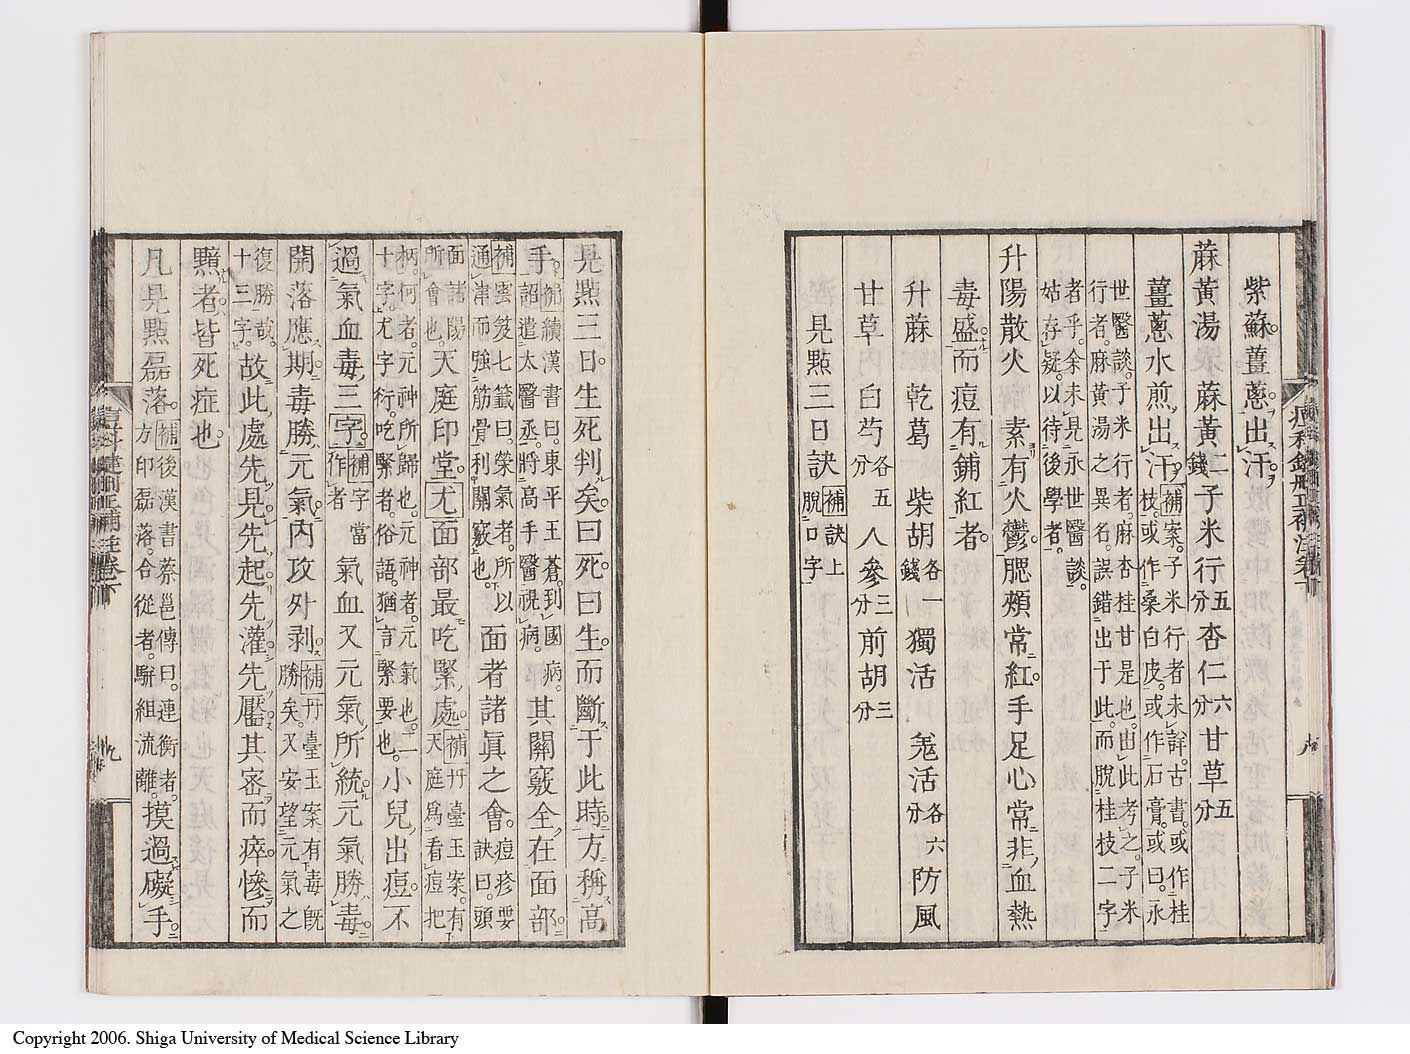 紫蘇薑蔥出汗
蔴黃湯 蔴黃二錢子米行五分杏仁六分甘草五分
薑蔥水煎出汗補案子米行者未詳古書或作桂枝或作桑白皮或作石膏或曰永
世醫談子米行者麻杏桂甘是也由此考之子米行者麻黃湯之異名誤錯出于此而脫桂枝二字
者乎余未見永世醫談姑存疑以待後學者
升陽散火 素有火鬱腮頰常紅手足心常非血熱
毒盛而痘有鋪紅者
升蔴 乾葛 柴胡各一錢 獨活 羌活各六分 防風
甘草 白芍各五分 人參三分 前胡三分
見點三日訣補訣上脫口字
痘科鍵刪正補注卷下
九
見點三日生死判矣曰死曰生而斷于此時方稱高
手補續漢書曰東平王蒼到國病詔遣太醫丞將高手醫視病其關竅全在面部
補雲笈七籤曰榮氣者所以通津而強筋骨利關竅也面者諸眞之會痘疹要訣曰頭
面諸陽所會也天庭印堂尤面部最吃緊處補丹臺玉案有天庭爲看痘把
柄何者元神所歸也元神者元氣也二十字尤字行吃緊者俗語猶言緊要也小兒出痘不
過氣血毒三字補字當作者氣血又元氣所統元氣勝毒
開落應期毒勝元氣內攻外剥補丹臺玉案有毒旣勝矣又安望元氣之
復勝哉十三字故此處先見先起先灌先靨其密而瘁慘而
黯者皆死症也
凡見點磊落補後漢書蔡邕傳曰連衡者方印磊落合從者駢組流離摸過礙手
痘科鍵刪正補注卷下
九
Copyright 2006. Shiga University of Medical Science Library